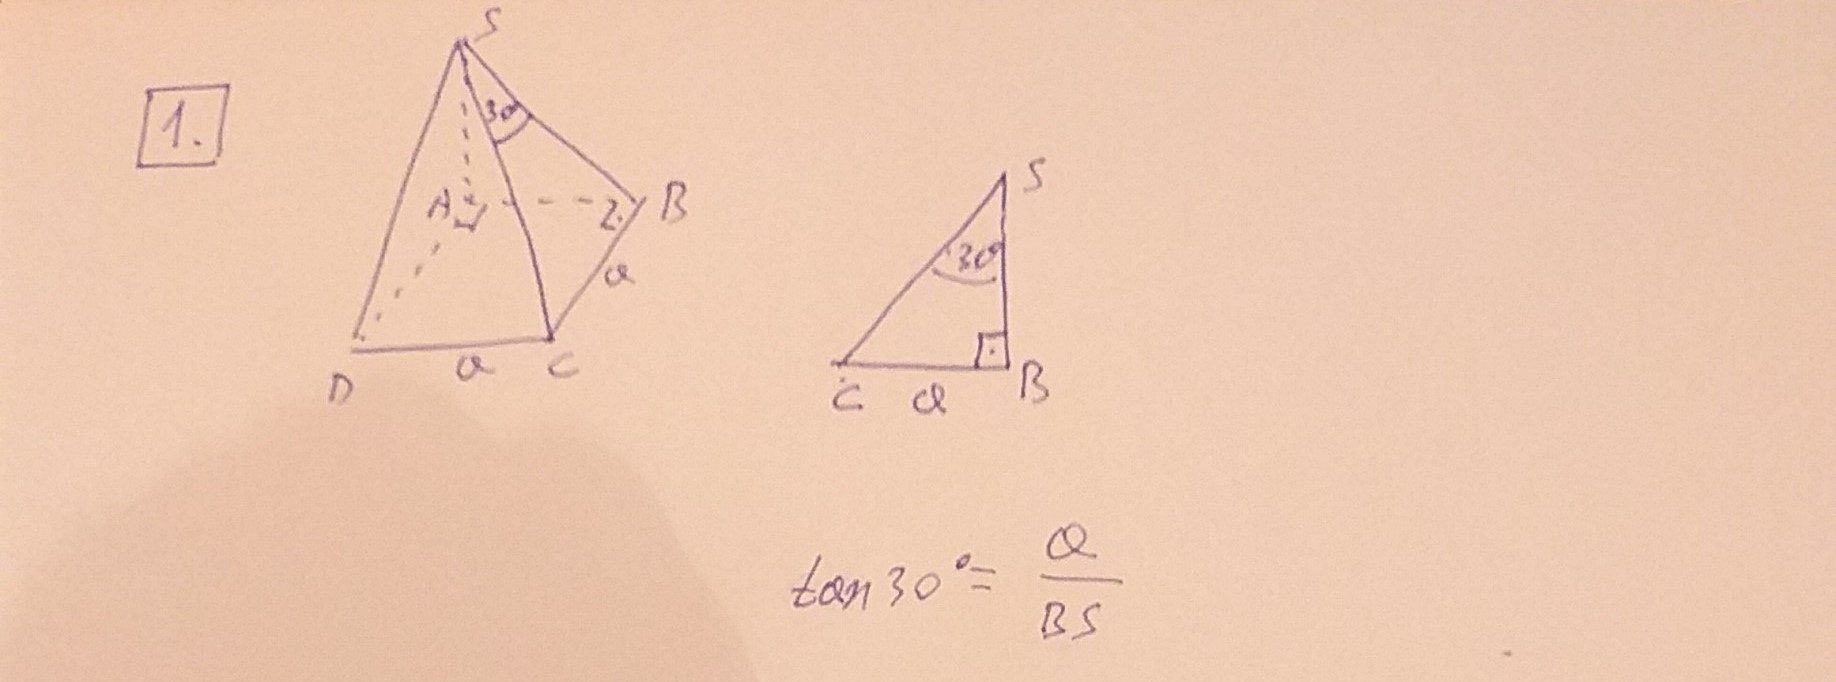 1.
S
30°
A
2.
B
a
D
a
C
S
30°
C
a
B
tan 30° = a / BS